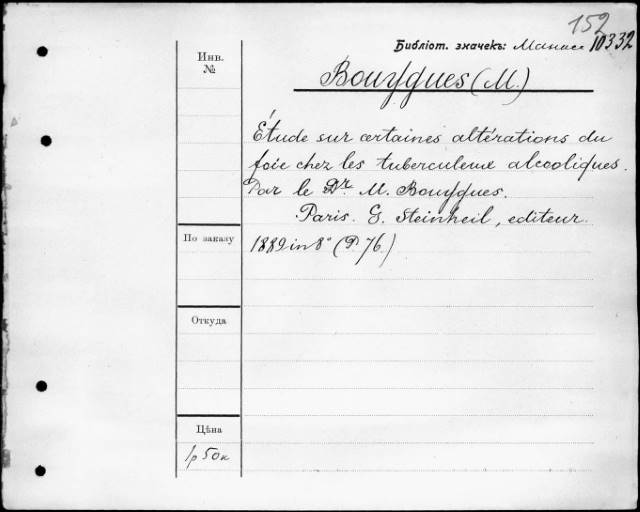 152
Библіот. значекъ: Манас 10332
Инв.
№
Bouygues (M.)
Étude sur certaines altérations du
foie chez les tuberculeux alcooliques.
Par le Dr. M. Bouygues.
Paris. G. Steinheil, editeur.
По заказу
1889 in 8° (P. 76.)
Откуда
Цѣна
1р 50к